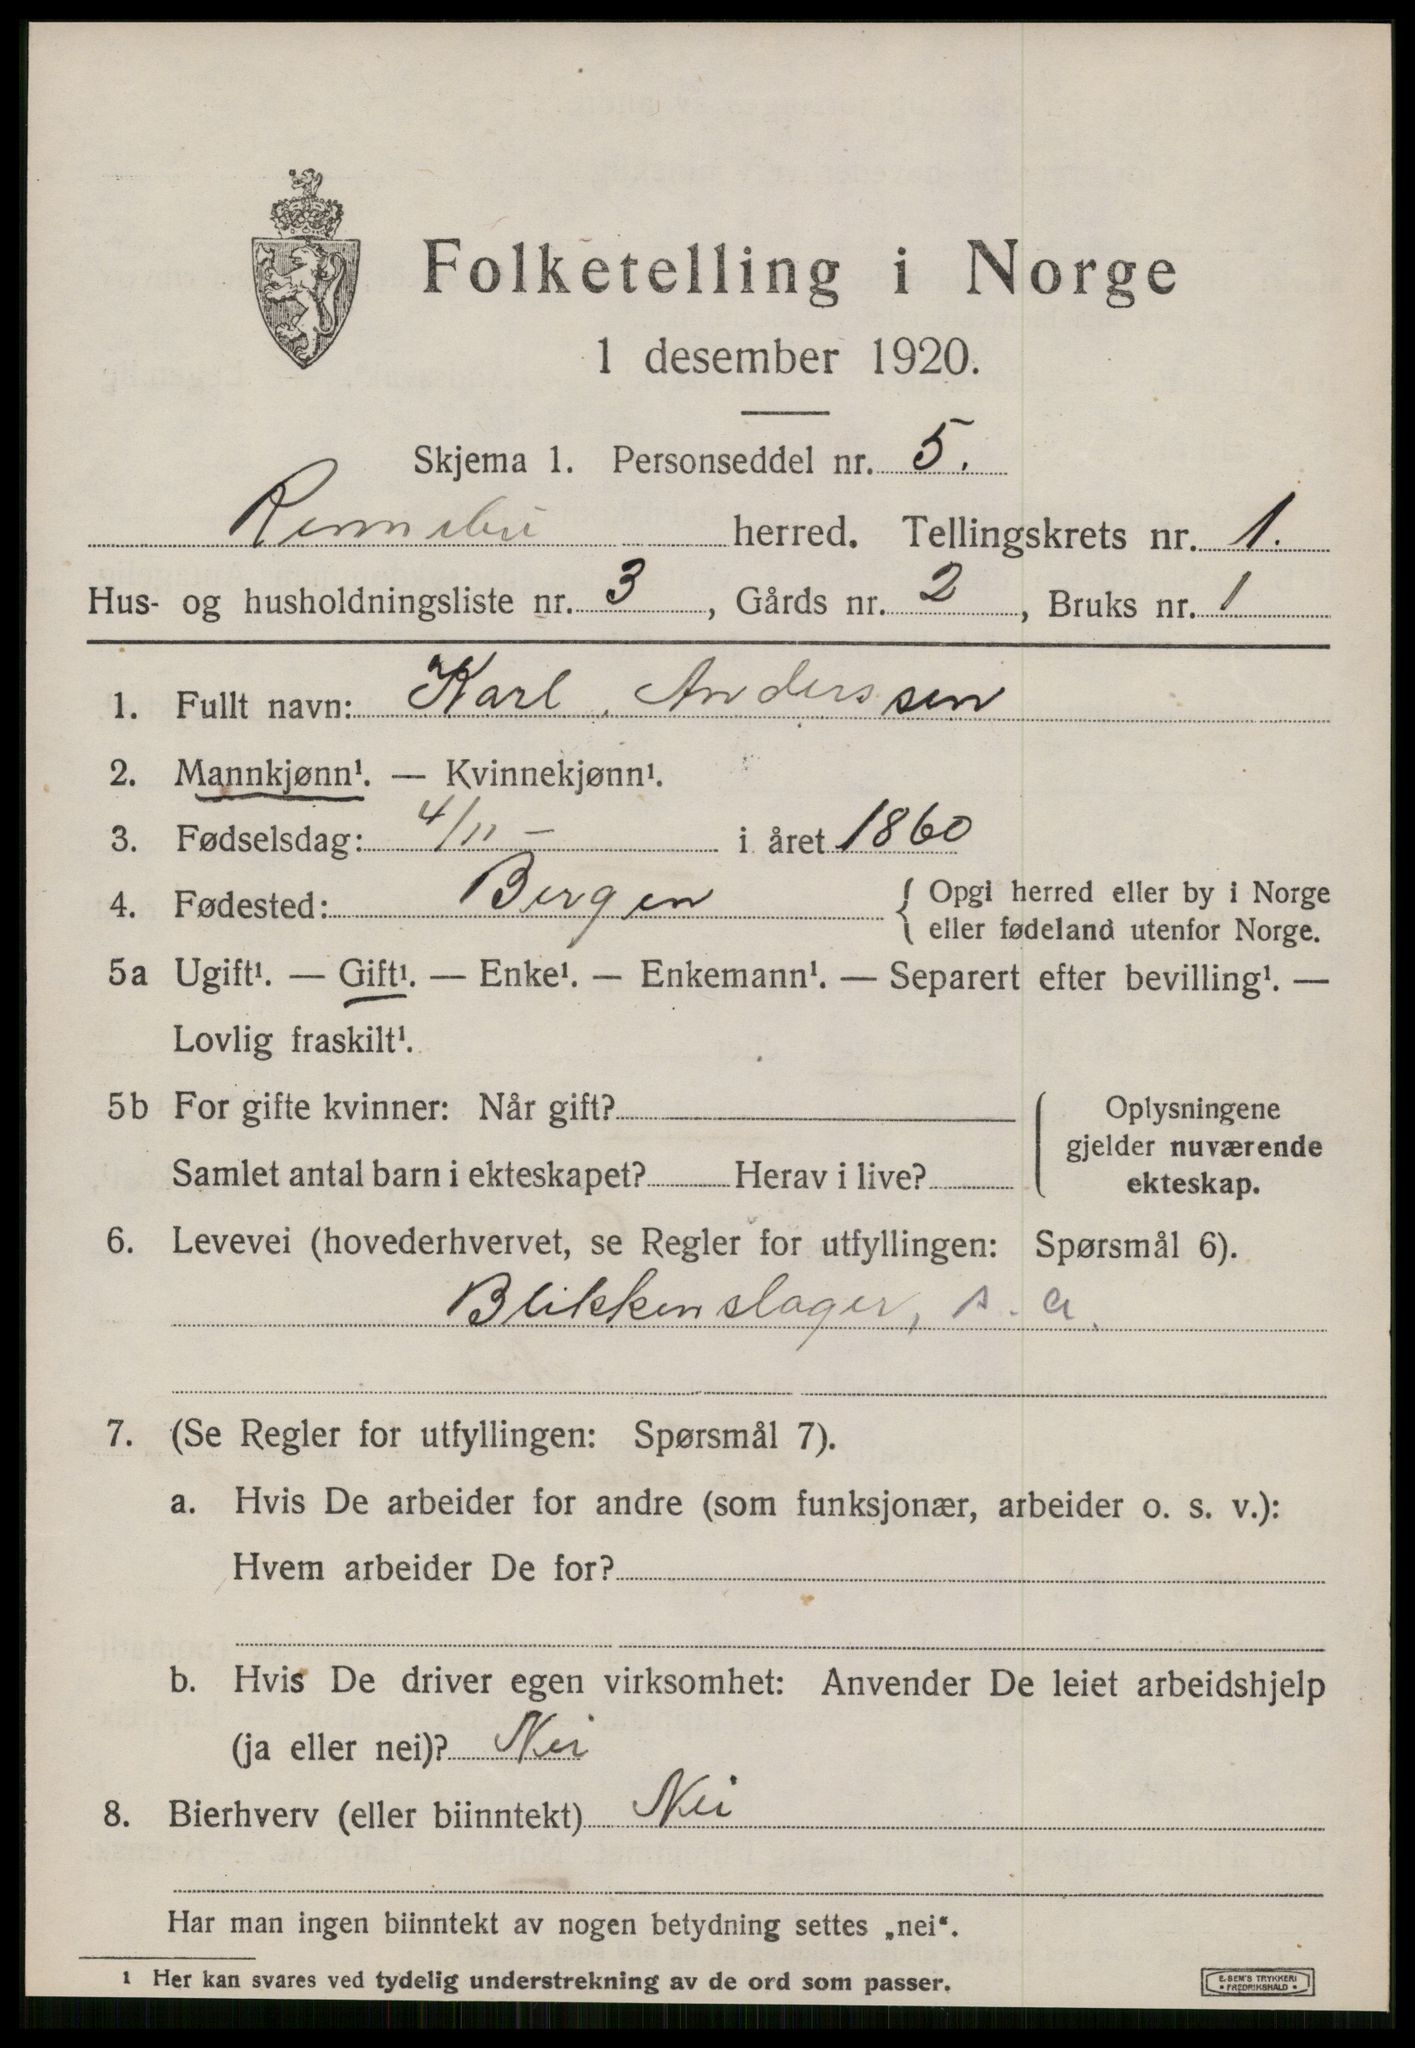 Folketelling i Norge
1 desember 1920.
Skjema 1. Personseddel nr. 5.
Rennebu herred. Tellingskrets nr. 1.
Hus- og husholdningsliste nr. 3, Gårds nr. 2, Bruks nr. 1
1. Fullt navn: Karl Anderssen
2. Mannkjønn¹. — Kvinnekjønn¹.
3. Fødselsdag: 4/11 - i året 1860
4. Fødested: Bergen { Opgi herred eller by i Norge
eller fødeland utenfor Norge.
5a Ugift¹. — Gift¹. — Enke¹. — Enkemann¹. — Separert efter bevilling¹. —
Lovlig fraskilt¹.
5b For gifte kvinner: Når gift?
Samlet antal barn i ekteskapet? Herav i live?
Oplysningene
gjelder nuværende
ekteskap.
6. Levevei (hovederhvervet, se Regler for utfyllingen: Spørsmål 6).
Blikkenslager, s. a.
7. (Se Regler for utfyllingen: Spørsmål 7).
a. Hvis De arbeider for andre (som funksjonær, arbeider o. s. v.):
Hvem arbeider De for?
b. Hvis De driver egen virksomhet: Anvender De leiet arbeidshjelp
(ja eller nei)? Nei
8. Bierhverv (eller biinntekt) Nei
Har man ingen biinntekt av nogen betydning settes „nei“.
1 Her kan svares ved tydelig understrekning av de ord som passer.
E. SEM'S TRYKKERI
• FREDRIKSHALD •